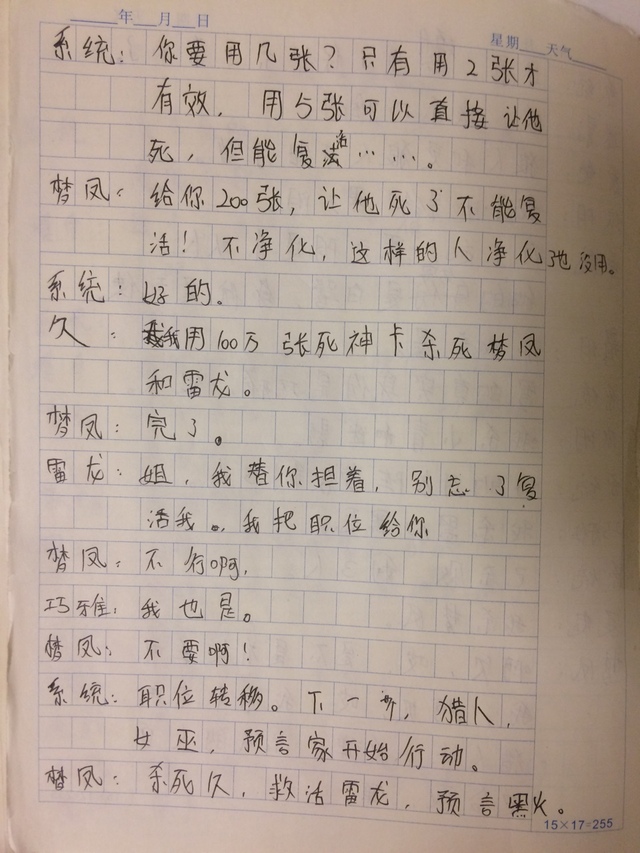 年 月 日
星期 天气
系统：你要用几张？只有用2张才
有效，用5张可以直接让他
死，但能复活……。
梦凤：给你200张，让他死了不能复
活！不净化，这样的人净化了也没用。
系统：好的。
久：我用100万张死神卡杀死梦凤
和雷龙。
梦凤：完了。
雷龙：姐，我替你担着，别忘了复
活我。，我把职位给你
梦凤：不行啊，
巧雅：我也是。
梦凤：不要啊！
系统：职位转移。下一步，猎人，
女巫，预言家开始行动。
梦凤：杀死久，救活雷龙，预言黑火。
15×17=255